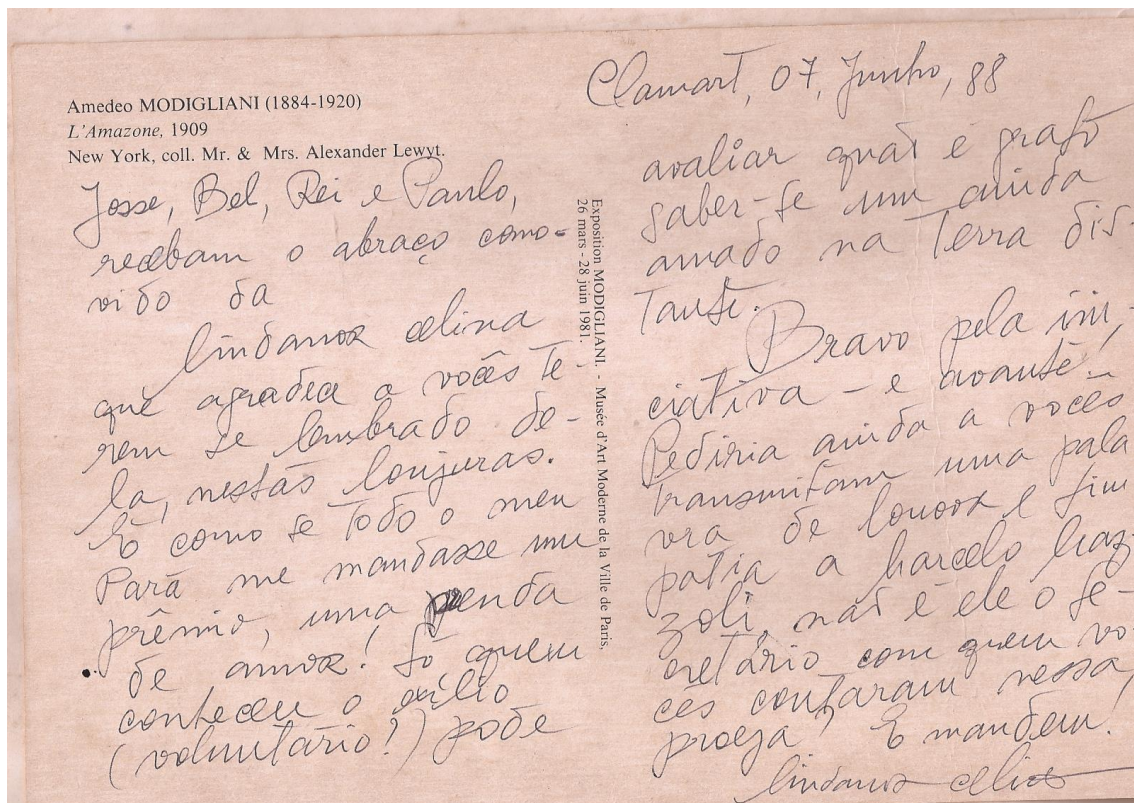 Amedeo MODIGLIANI (1884-1920)
L'Amazone, 1909
New York, coll. Mr. & Mrs. Alexander Lewyt.
Josse, Bel, Rei e Paulo,
recebam o abraço como-
vido da
Lindanor Celina
que agradece a vocês te-
rem se lembrado de-
la, nestas lonjuras.
É como se todo o meu
Pará me mandasse um
prêmio, uma prenda
de amor! Só quem
conheceu o exílio
(voluntário?) pode
Exposition MODIGLIANI. - Musée d'Art Moderne de la Ville de Paris,
26 mars - 28 juin 1981.
Clamart, 07, Junho, 88
avaliar quão é grato
saber-se um ainda
amado na Terra dis-
tante.
Bravo pela ini-
ciativa – e avante!
Pediria ainda a vocês
transmitam uma pala
vra de louvor e sim
patia a Marcelo
não é ele o se-
cretário com quem vo-
cês contaram nessa
proeza? E mandem!
Lindanor Celina